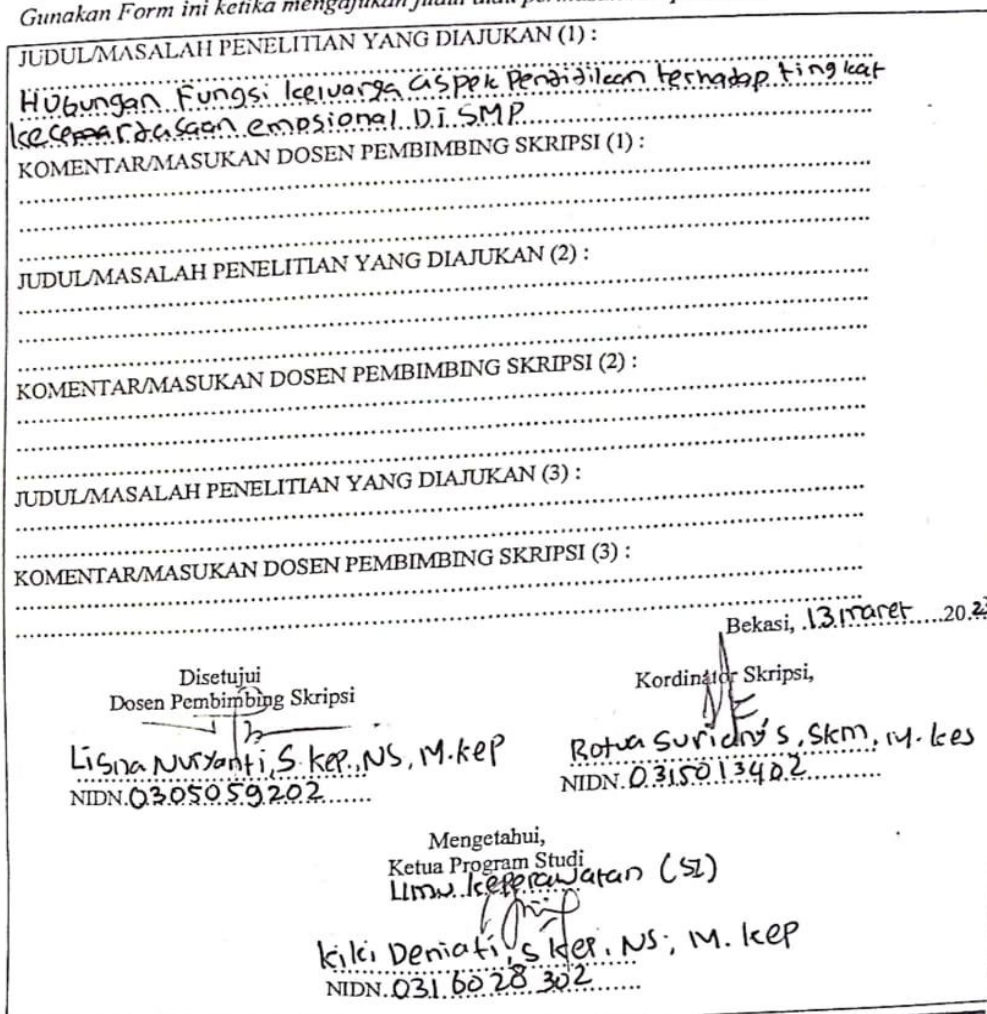 Gunakan Form ini ketika mengajukan judul
JUDUL/MASALAH PENELITIAN YANG DIAJUKAN (1) :
HUbungan Fungsi keluarga aspek Pendidikan terhadap tingkat
emosional Di SMP
KOMENTAR/MASUKAN DOSEN PEMBIMBING SKRIPSI (1) :
JUDUL/MASALAH PENELITIAN YANG DIAJUKAN (2) :
KOMENTAR/MASUKAN DOSEN PEMBIMBING SKRIPSI (2) :
JUDUL/MASALAH PENELITIAN YANG DIAJUKAN (3) :
KOMENTAR/MASUKAN DOSEN PEMBIMBING SKRIPSI (3) :
Bekasi, 13 maret 20.2
Disetujui
Dosen Pembimbing Skripsi
Lisna Nuryanti, S.kep., NS, M.kep
NIDN. 0305059202
Kordinator Skripsi,
Rotua Suriany S, Skm, M.kes
NIDN. 0315013402
Mengetahui,
Ketua Program Studi
Ilmu keperawatan (S1)
kiki Deniati, S kep. NS, M. kep
NIDN. 0316028302